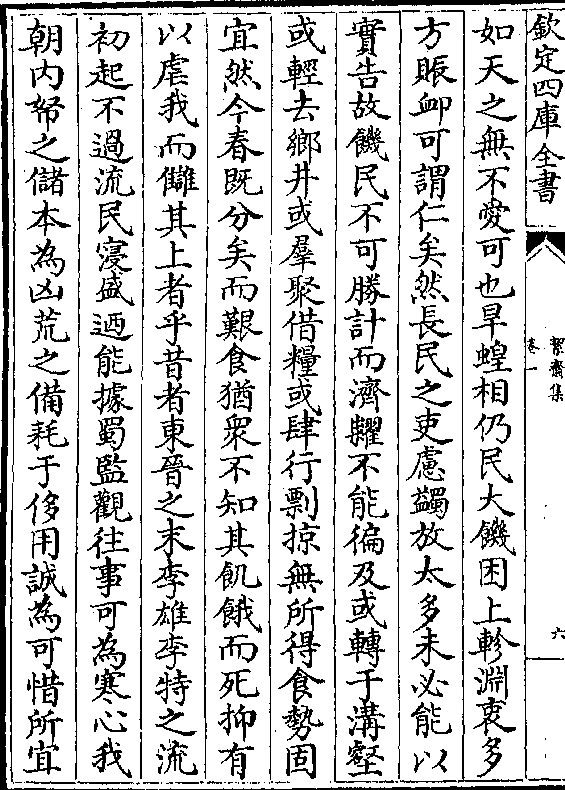 欽定四庫全書
絜齋集
卷一
六
如天之無不愛可也旱蝗相仍民大饑困上軫淵衷多
方賑䘏可謂仁矣然長民之吏慮蠲放太多未必能以
實告故饑民不可勝計而濟糶不能徧及或轉于溝壑
或輕去鄉井或羣聚借糧或肆行剽掠無所得食勢固
宜然今春既分矣而艱食猶衆不知其飢餓而死抑有
以虐我而讎其上者乎昔者東晉之末李雄李特之流
初起不過流民寖盛迺能據蜀監觀往事可為寒心我
朝内帑之儲本為凶荒之備耗于侈用誠為可惜所宜